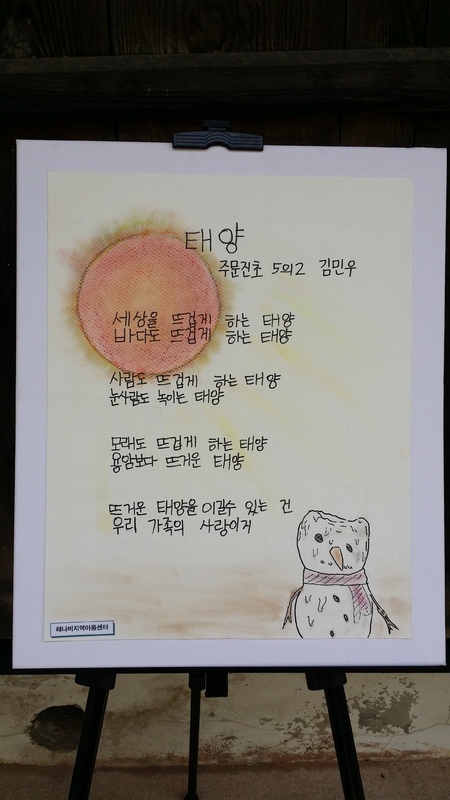 태양
주문진초 5의2 김민우
세상을 뜨겁게 하는 태양
바다도 뜨겁게 하는 태양
사람도 뜨겁게 하는 태양
눈사람도 녹이는 태양
모래도 뜨겁게 하는 태양
용암보다 뜨거운 태양
뜨거운 태양을 이길수 있는 건
우리 가족의 사랑이지
해나비지역아동센터